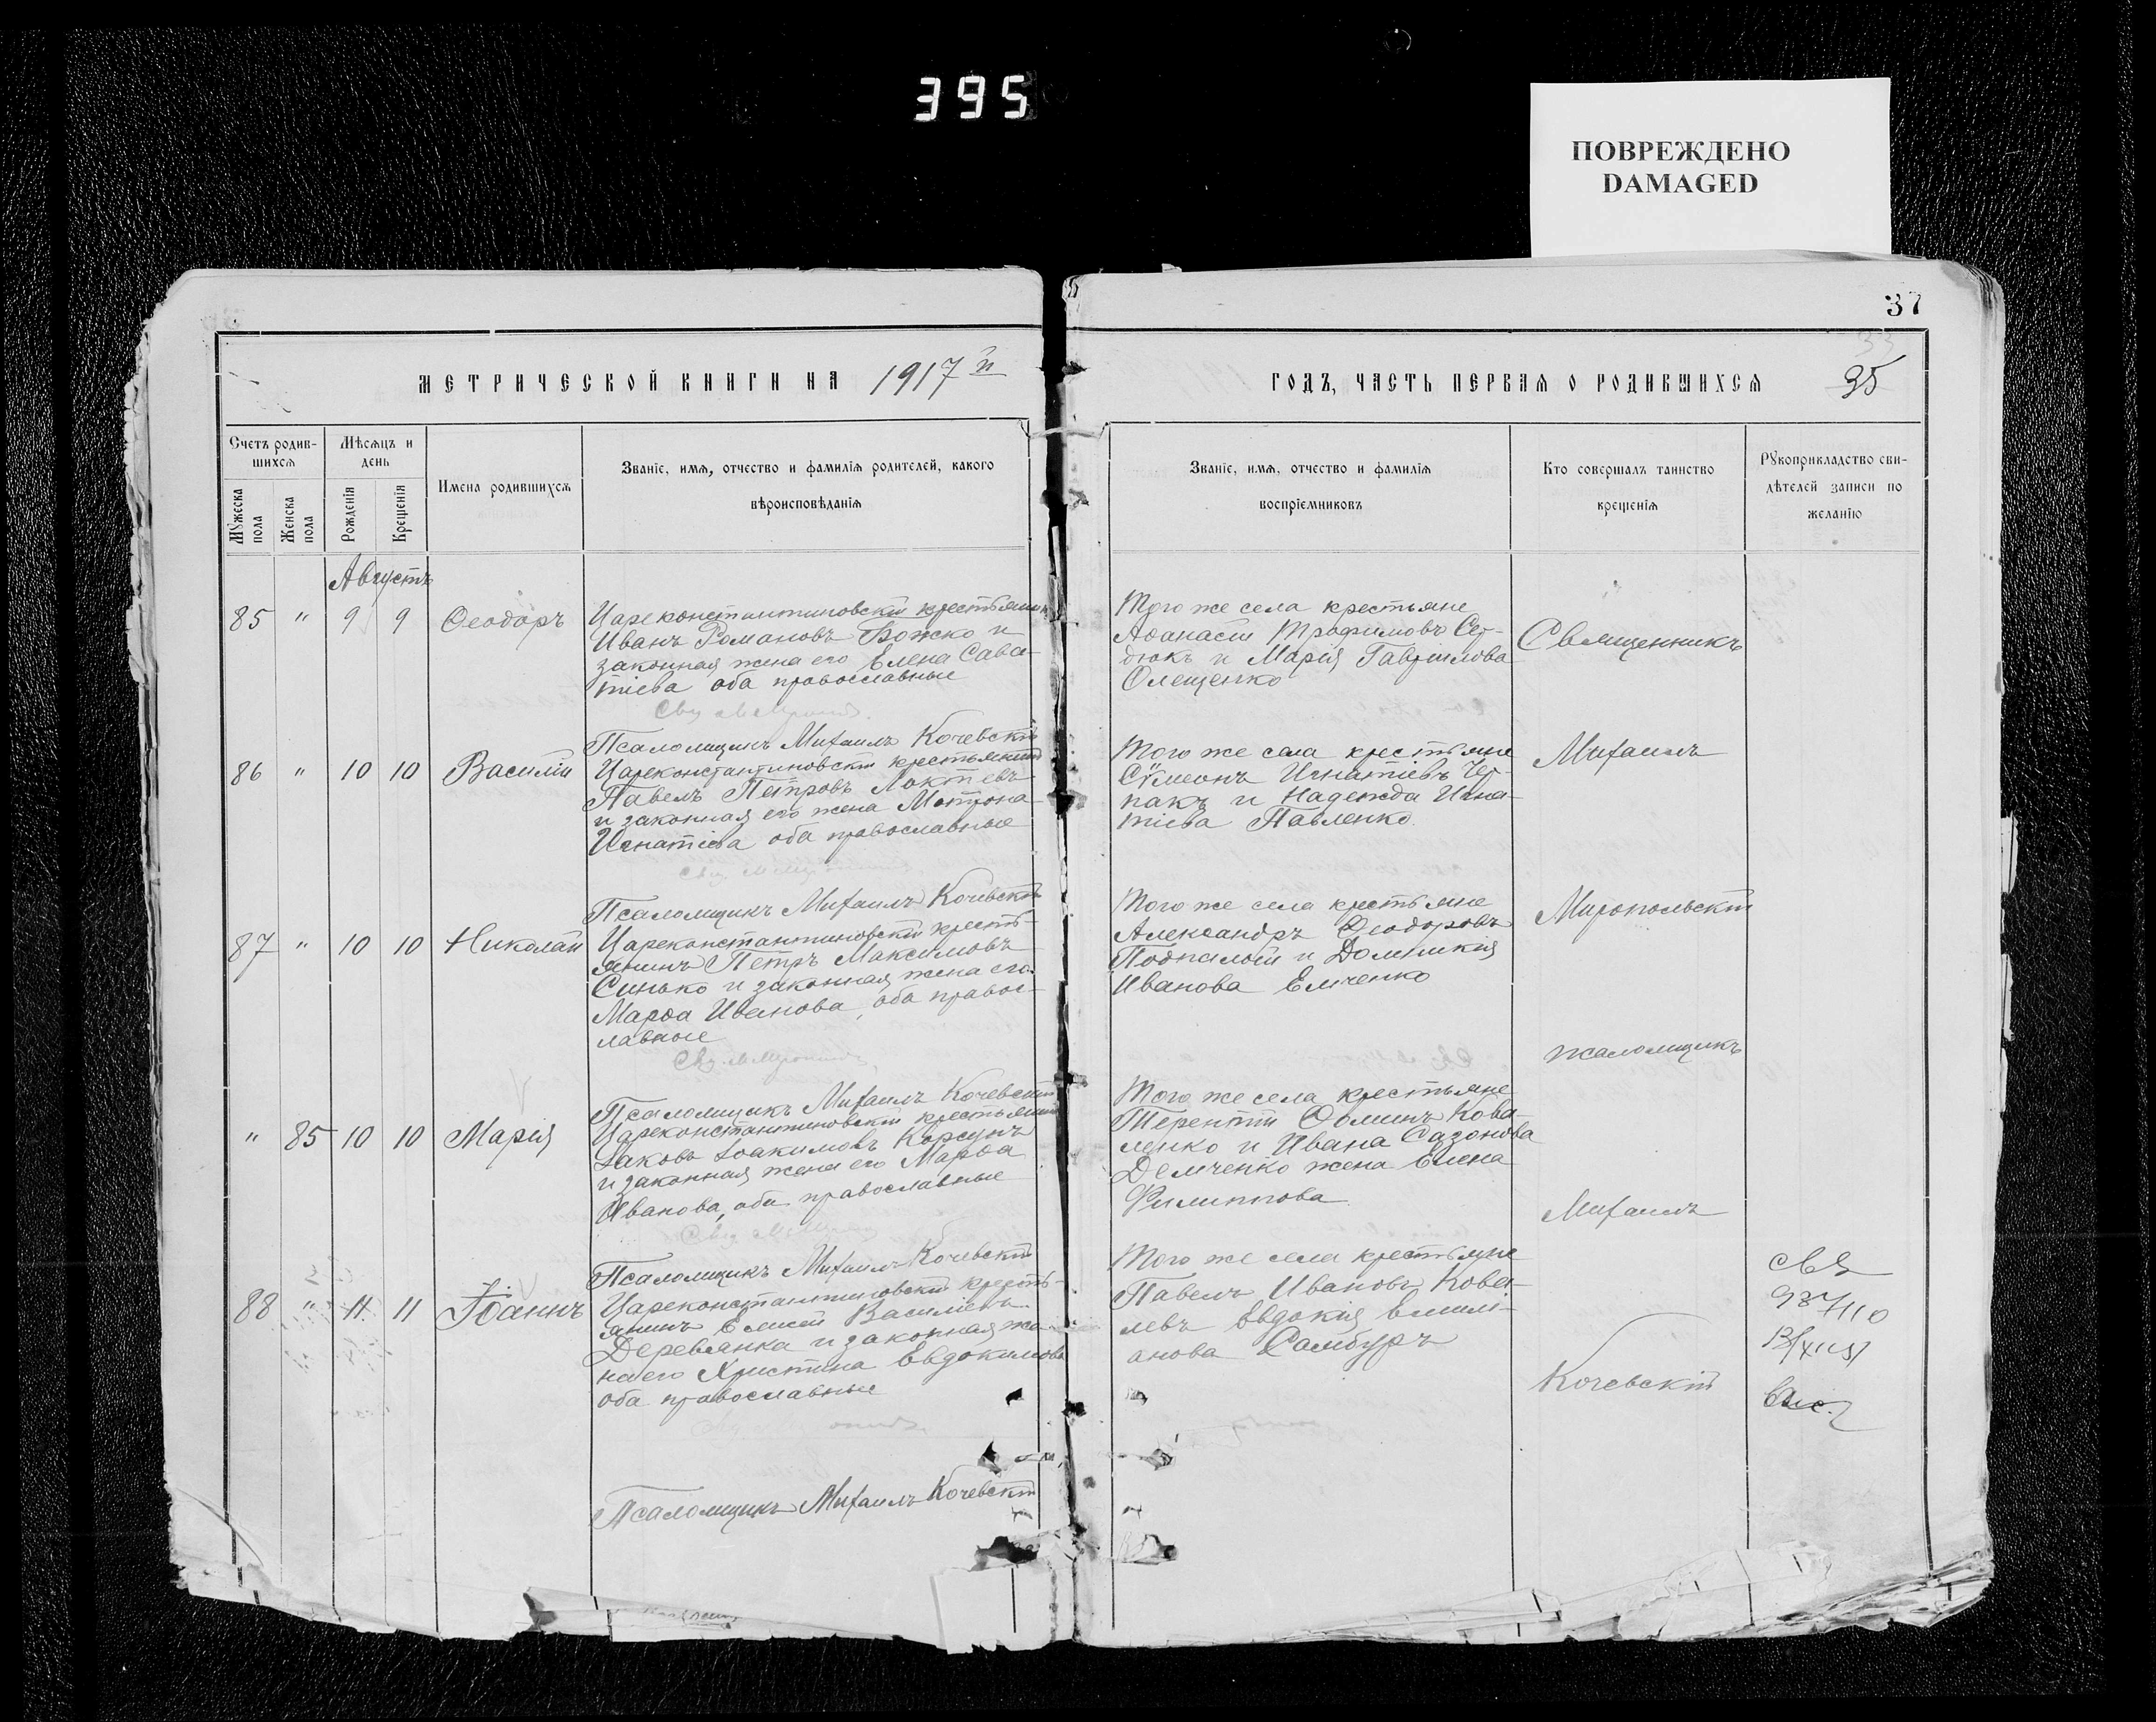 395
ПОВРЕЖДЕНО
DAMAGED
37
МЕТРИЧЕСКОЙ КНИГИ НА 1917й
ГОДЪ, ЧАСТЬ ПЕРВАЯ О РОДИВШИХСЯ
35
Счетъ родив-
шихся
Мужеска пола
Женска пола
Мѣсяцъ и
день
Рожденія
Крещенія
Имена родившихся
Званіе, имя, отчество и фамилія родителей, какого
вѣроисповѣданія
Званіе, имя, отчество и фамилія
воспріемниковъ
Кто совершалъ таинство
крещенія
Рукоприкладство сви-
дѣтелей записи по
желанію
Августъ
85 " 9 9 Ѳеодоръ
Цареконстантиновскій крестьянинъ
Иванъ Романовъ Божко и
законная жена его Елена Сава-
тіева оба православные
Того же села крестьяне
Аѳанасій Трофимовъ Сер-
дюкъ и Марія Гавріилова
Олещенко
Священникъ
Псаломщикъ Михаилъ Кочевскій
86 " 10 10 Василій
Цареконстантиновскій крестьянинъ
Павелъ Петровъ Локтевъ
и законная его жена Матрона
Игнатіева оба православные
Того же села крестьяне
Сѵмеонъ Игнатіевъ Чер-
пакъ и Надежда Игна-
тіева Павленко
Михаилъ
Псаломщикъ Михаилъ Кочевскій
87 " 10 10 Николай
Цареконстантиновскій кресть-
янинъ Петръ Максимовъ
Синько и законная жена его
Марѳа Иванова, оба правос-
лавные
Того же села крестьяне
Александръ Ѳеодоровъ
Подпалый и Домникія
Иванова Емченко
Миропольскій
псаломщикъ
Псаломщикъ Михаилъ Кочевскій
" 85 10 10 Марія
Цареконстантиновскій крестьянинъ
Іаковъ Іоакимовъ Корсунъ
и законная жена его Марѳа
Иванова, оба православные
Того же села крестьяне
Терентій Ѳоминъ Кова-
ленко и Ивана Сазонова
Демченко жена Елена
Филиппова
Михаилъ
Псаломщикъ Михаилъ Кочевскій
88 " 11 11 Іоаннъ
Цареконстантиновскій кресть-
янинъ Елисей Василіевъ
Деревянка и законная же-
на его Христина Евдокимова
оба православные
Того же села крестьяне
Павелъ Ивановъ Кова-
левъ Евдокія Емилі-
анова Самбуръ
Кочевскій
Псаломщикъ Михаилъ Кочевскій